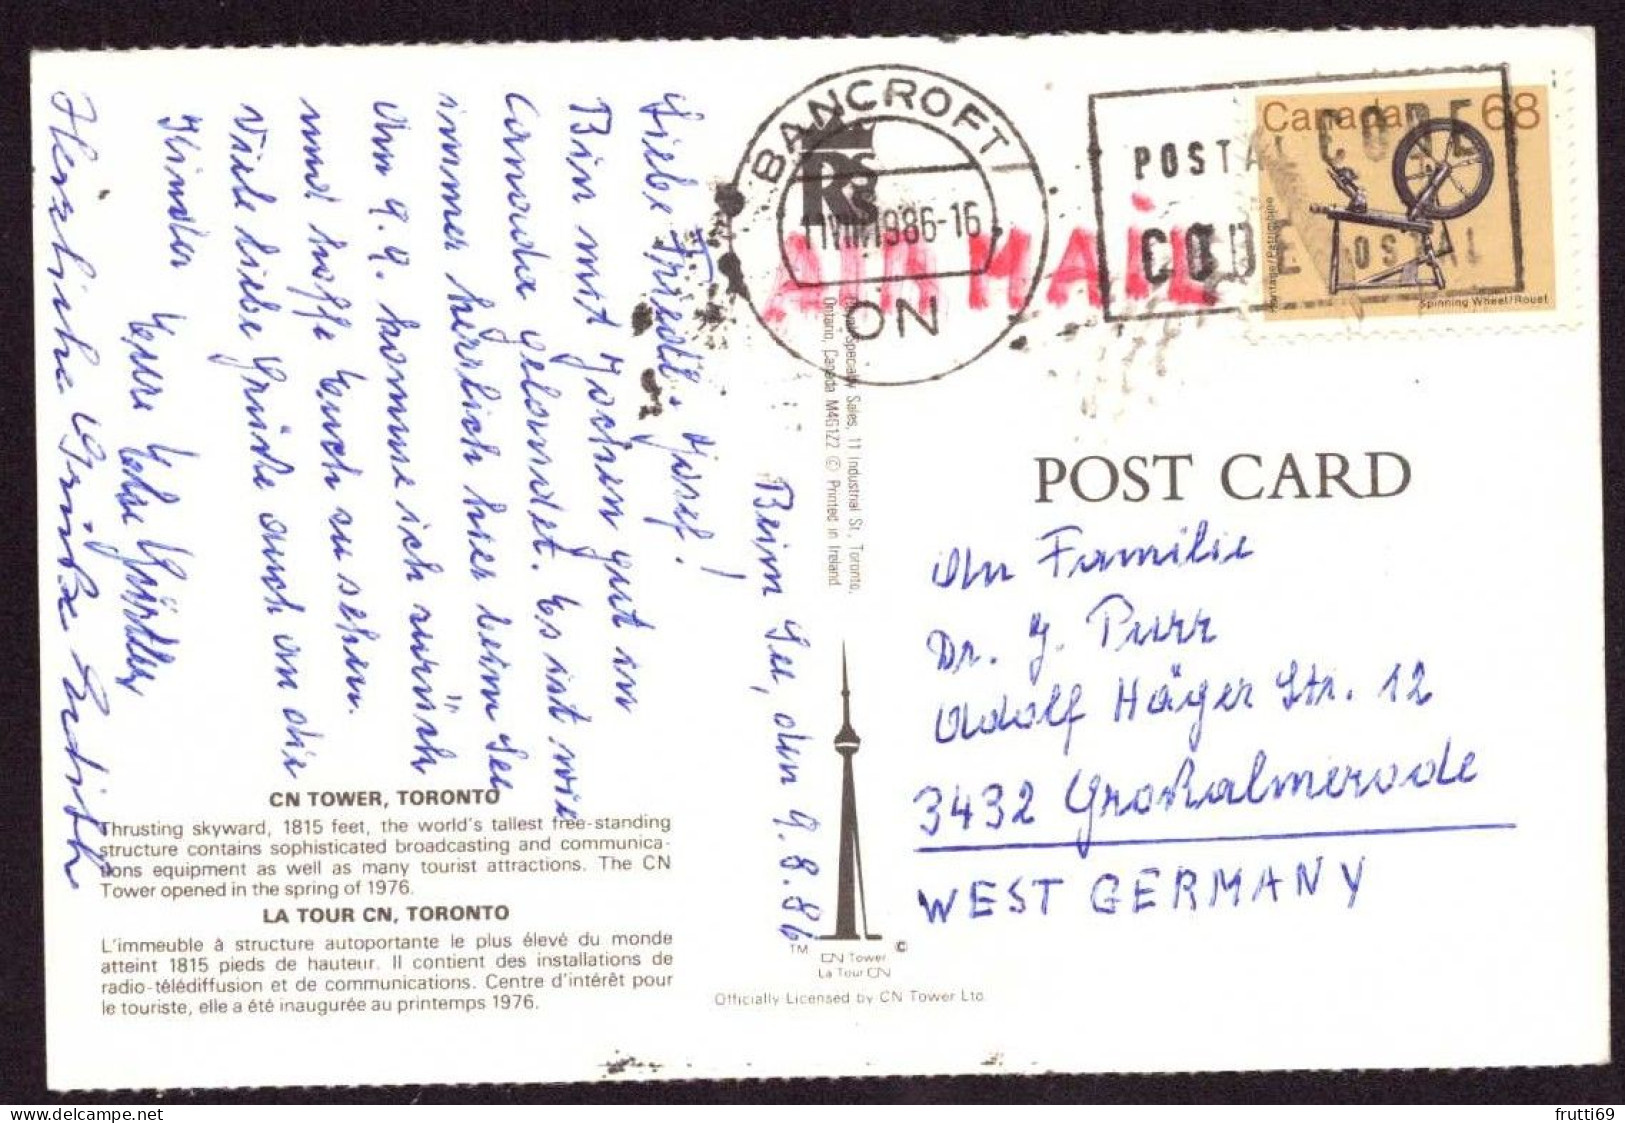 Beim See, den 9.8.86
Liebe Friedl, Josef!
Bin mit Jochen gut in
Canada gelandet. Es ist wie
immer herrlich hier beim See
Am 9.9. komme ich zurück
und hoffe Euch zu sehen.
Viele liebe Grüße auch an die
Kinder Eure Edne
Herzliche Grüße Edith
CN TOWER, TORONTO
Thrusting skyward, 1815 feet, the world's tallest free-standing
structure contains sophisticated broadcasting and communica-
tions equipment as well as many tourist attractions. The CN
Tower opened in the spring of 1976.
LA TOUR CN, TORONTO
L'immeuble à structure autoportante le plus élevé du monde
atteint 1815 pieds de hauteur. Il contient des installations de
radio-télédiffusion et de communications. Centre d'intérêt pour
le touriste, elle a été inaugurée au printemps 1976.
Specialty Sales, 11 Industrial St., Toronto,
Ontario, Canada M4G1Z2 © Printed in Ireland
TM ©
CN Tower
La Tour CN
Officially Licensed by CN Tower Ltd.
BANCROFT
RSSS
11 VIII 1986-16
ON
AIR MAIL
POSTAL CODE
CODE POSTAL
Canada 68
Heritage/Patrimoine
Spinning Wheel/Rouet
POST CARD
An Familie
Dr. J. Purr
Adolf Häger Str. 12
3432 Großalmerode
WEST GERMANY
frutti69